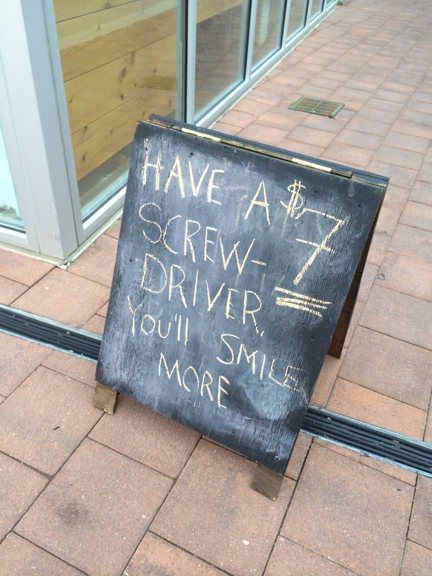 HAVE A $7
SCREW-
DRIVER,
You'll SMILE
MORE